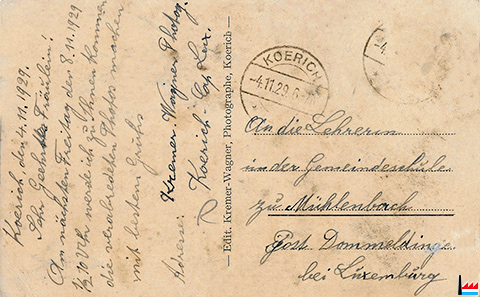 Koerich, den 4.11.1929.
Sehr Geehrtes Fräulein!
Am nächsten Freitag, den 8.11.1929
½10 Uhr werde ich zu Ihnen kommen
die verabredeten Photos machen
mit bestem Gruss
Adresse:
Kremer-Wagner Photog.
Koerich Cap Lux.
— Edit. Kremer-Wagner, Photographe, Koerich —
KOERICH
-4.11.29
An die Lehrerin
in der Gemeindeschule
zu Mühlenbach
Post Dommeldinge
bei Luxemburg